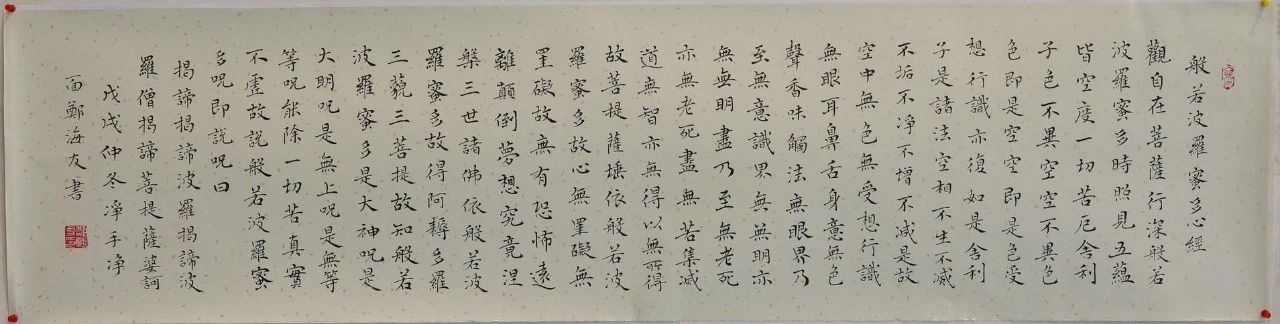 般若波羅蜜多心經
觀自在菩薩行深般若
波羅蜜多時照見五蘊
皆空度一切苦厄舍利
子色不異空空不異色
色即是空空即是色受
想行識亦復如是舍利
子是諸法空相不生不滅
不垢不淨不增不減是故
空中無色無受想行識
無眼耳鼻舌身意無色
聲香味觸法無眼界乃
至無意識界無無明亦
無無明盡乃至無老死
亦無老死盡無苦集滅
道無智亦無得以無所得
故菩提薩埵依般若波
羅蜜多故心無罣礙無
罣礙故無有恐怖遠
離顛倒夢想究竟涅
槃三世諸佛依般若波
羅蜜多故得阿耨多羅
三藐三菩提故知般若
波羅蜜多是大神呪是
大明呪是無上呪是無等
等呪能除一切苦真實
不虛故說般若波羅蜜
多呪即說呪曰
揭諦揭諦波羅揭諦波
羅僧揭諦菩提薩婆訶
戊戌仲冬淨手淨
面鄭海友書